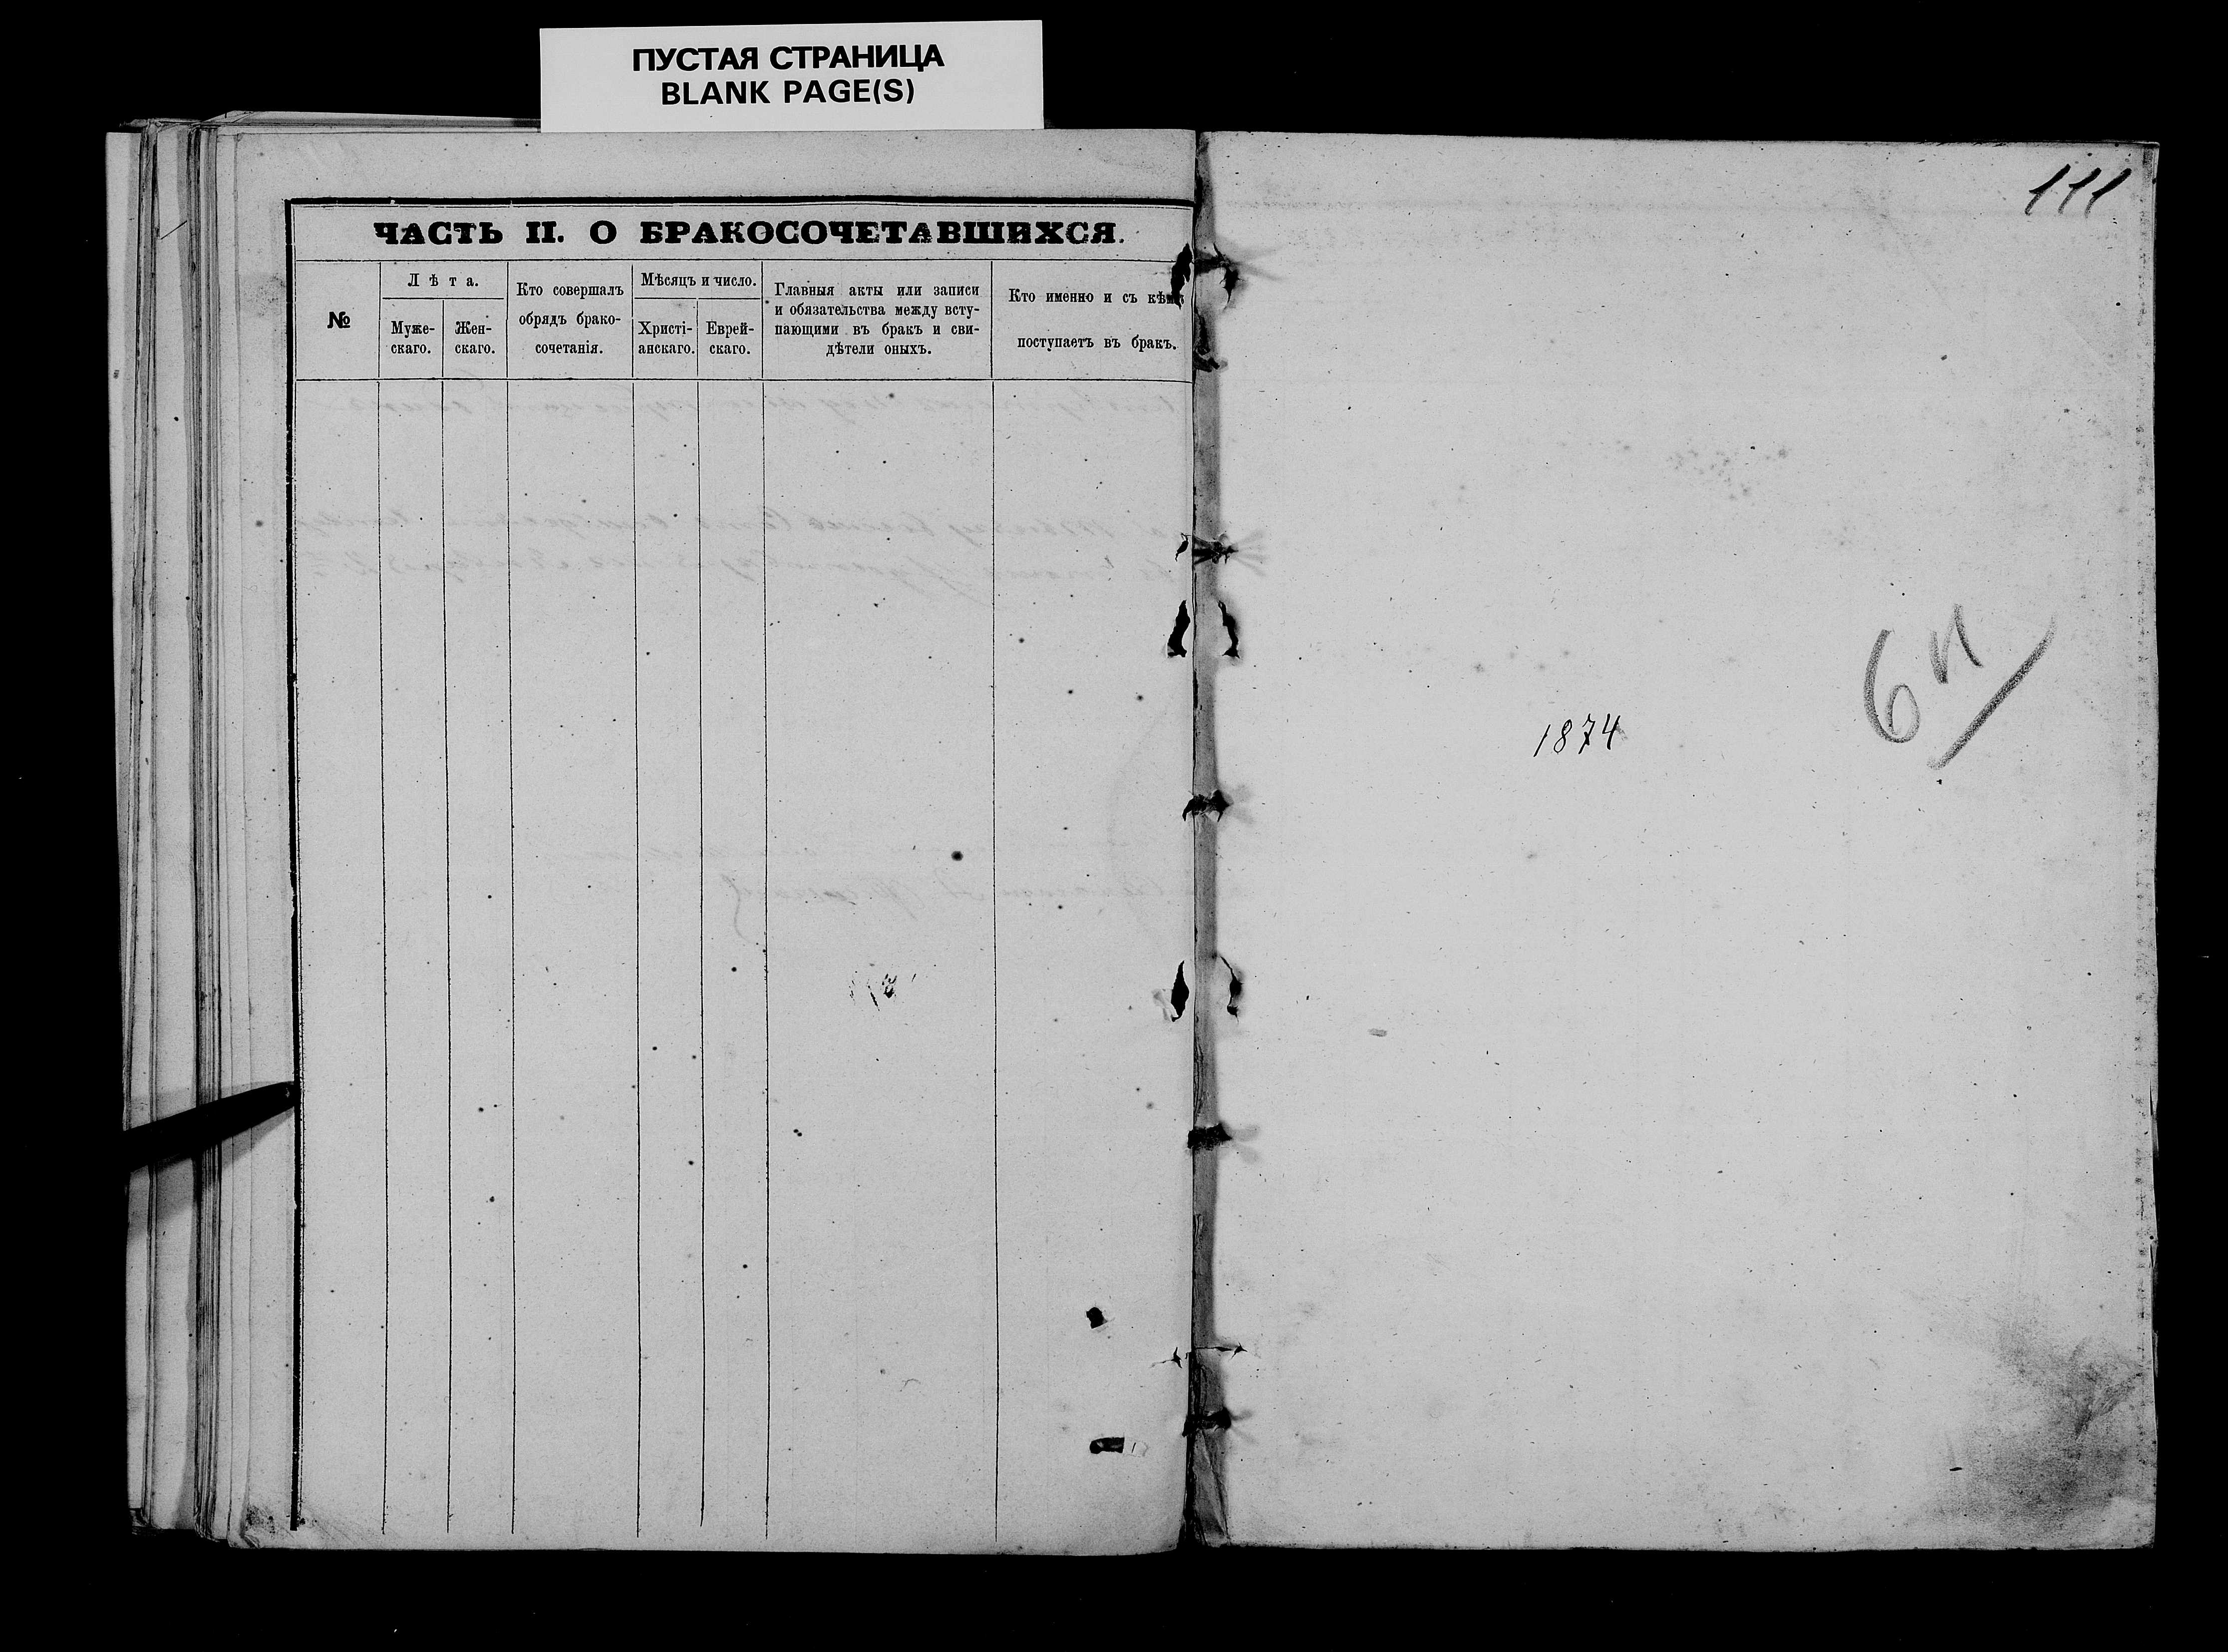 ПУСТАЯ СТРАНИЦА
BLANK PAGE(S)
ЧАСТЬ II. О БРАКОСОЧЕТАВШИХСЯ.
№
Лѣта.
Муже-
скаго.
Жен-
скаго.
Кто совершалъ
обрядъ брако-
сочетанія.
Мѣсяцъ и число.
Христі-
анскаго.
Еврей-
скаго.
Главныя акты или записи
и обязательства между всту-
пающими въ бракъ и сви-
дѣтели оныхъ.
Кто именно и съ кѣмъ
поступаетъ въ бракъ.
111
1874